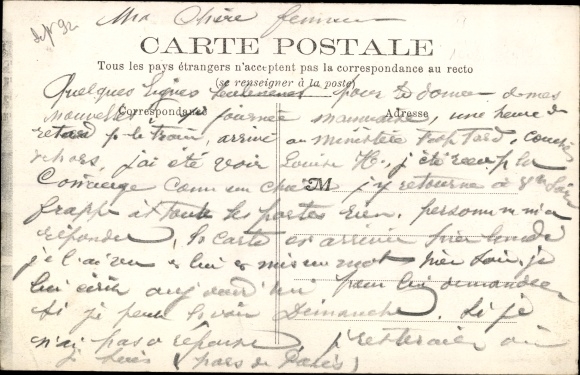 Ma Chère femme
CARTE POSTALE
Tous les pays étrangers n'acceptent pas la correspondance au recto
(se renseigner à la poste)
Quelques lignes seulement pour te donner de mes
Correspondance
Adresse
nouvelles journée mauvaise, une heure de
retard p. le train, arrivé au ministère trop tard,
j'ai été voir Louise H. j'ai été reçu p. la
Concierge comme un M j'y retourne à 8h
frappe à toute les portes rien. personne m'a
répondu, la carte est arrivée hier
je l'ai vu mis un mot hier soir, je
lui écris aujourd'hui pour lui demander
si je peux la voir Dimanche. Si je
n'ai pas de réponse, je resterai où
je suis (pars de Paris)